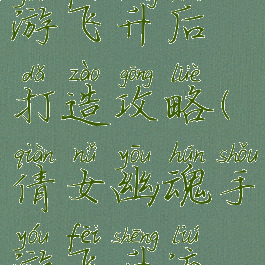 游飞升后
dǎ zào gōng lüè
打造攻略(
qiàn nǚ yōu hún shǒu
倩女幽魂手
yóu fēi shēng
游飞升